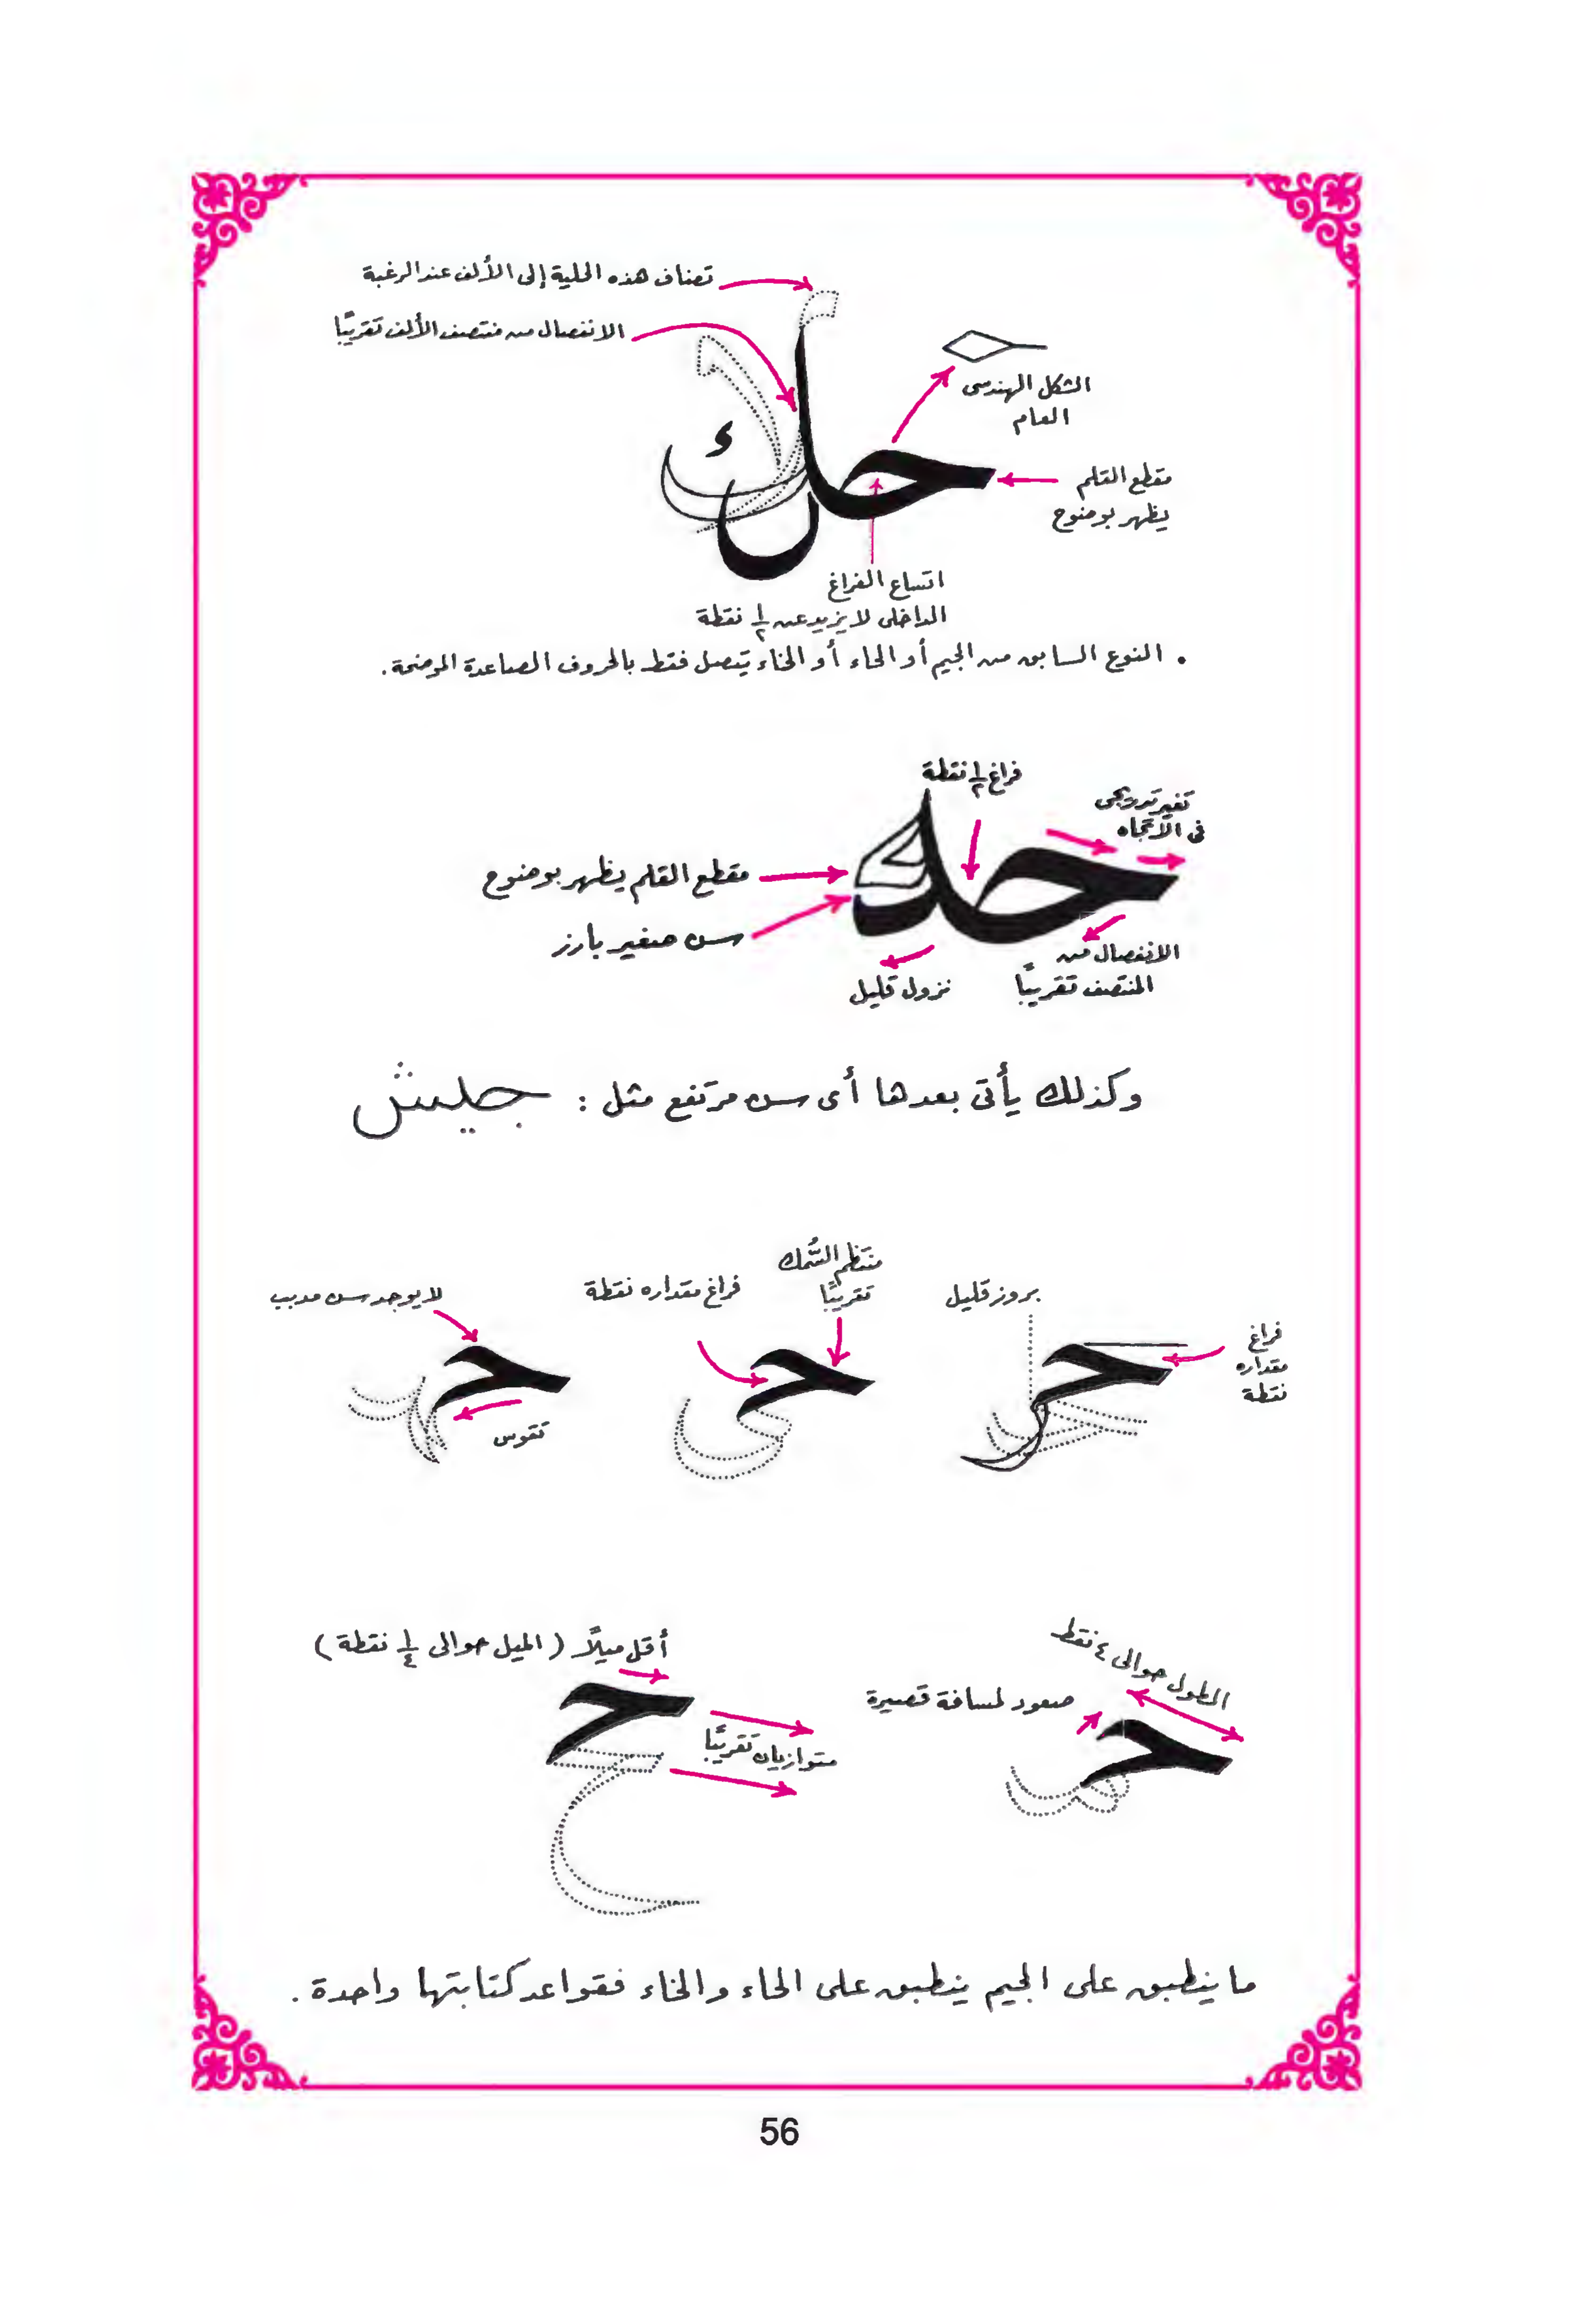 تضاف هذه الحلية إلى الألف عند الرغبة
الانفصال من منتصف الألف تقريبًا
الشكل الهندسى
العام
مقطع القلم
يظهر بوضوح
اتساع الفراغ
الداخلى لا يزيد عن ١/٢ نقطة
• النوع السابق من الجيم أو الحاء أو الخاء يتصل فقط بالحروف الصاعدة الموضحة.
فراغ ١/٢ نقطة
تغير تدريجى
فى الاتجاه
مقطع القلم يظهر بوضوح
سن صغير بارز
الانفصال من
المنتصف تقريبًا
نزول قليل
وكذلك يأتى بعدها أى سن مرتفع مثل : جيش
منتظم السُّمك
تقريبًا
بروز قليل
فراغ مقداره نقطة
لا يوجد سن مدبب
فراغ
مقداره
نقطة
تقوس
الطول حوالى ٤ نقط
أقل ميلًا ( الميل حوالى ١/٤ نقطة )
صعود لمسافة قصيرة
متوازيان تقريبًا
ما ينطبق على الجيم ينطبق على الحاء والخاء فقواعد كتابتها واحدة .
56